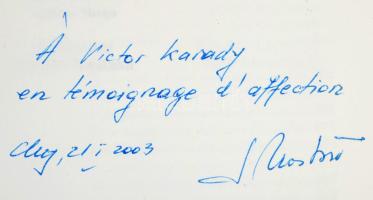 À Victor Karady
en témoignage d'affection
Cluj, 21 I 2003